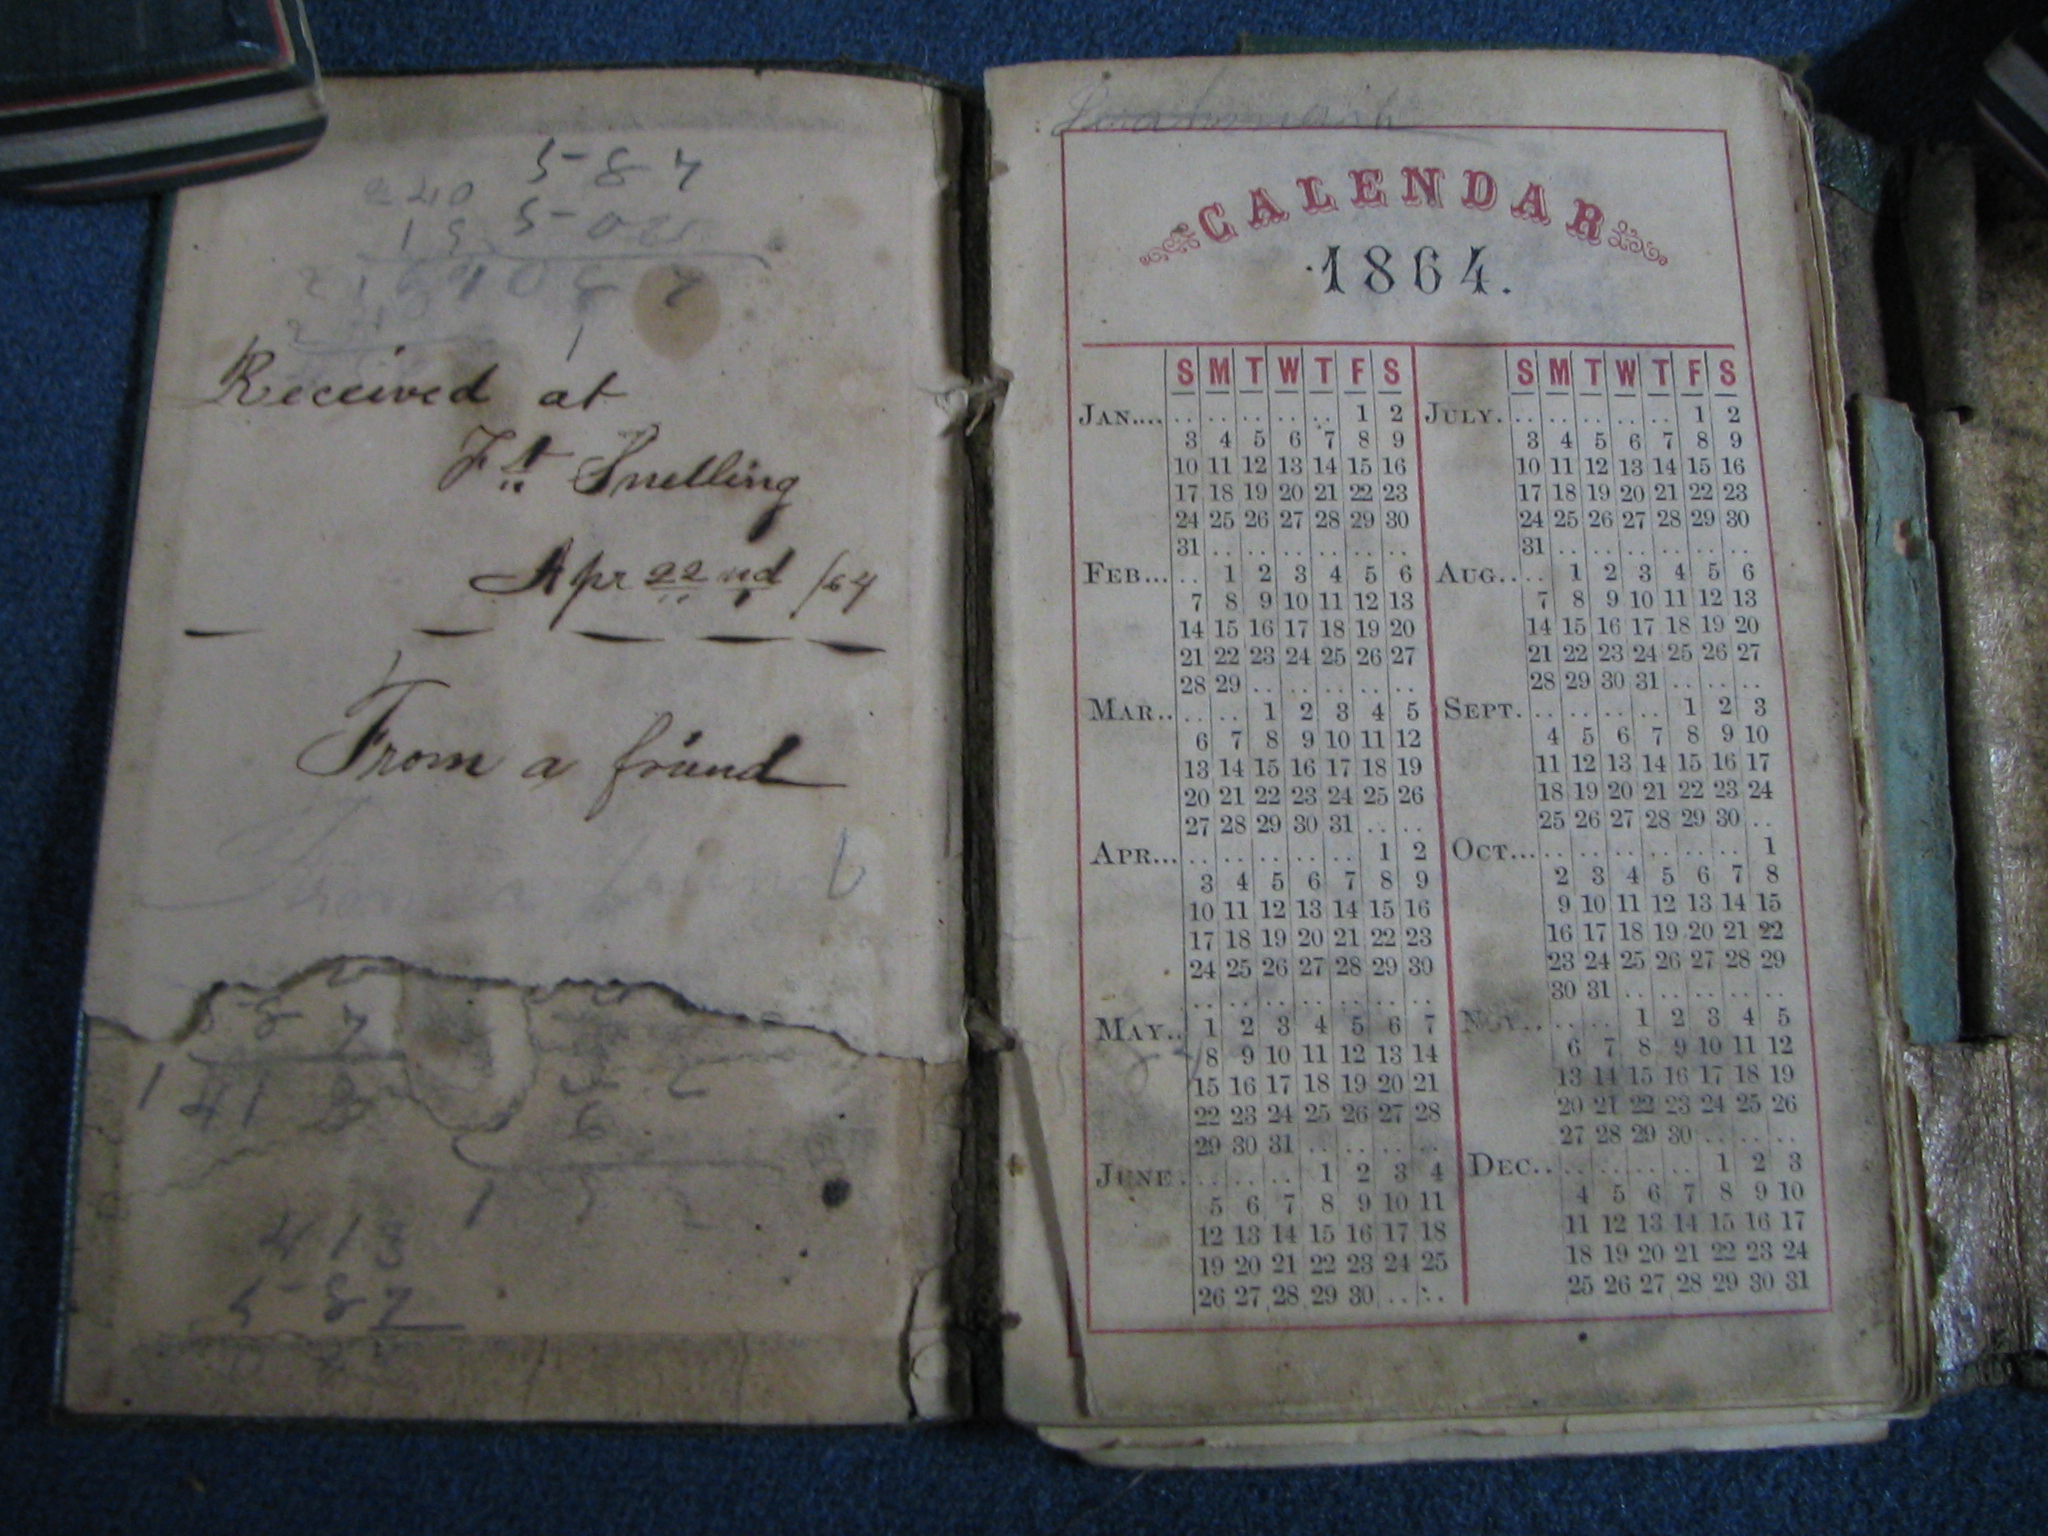 5 8 7
240
Received at
Ft Snelling
Apr 22nd /64
From a friend
5 8 7
1 41 3
6
4 1 3
5 8 7
CALENDAR
1864.
S M T W T F S
JAN.... .. .. .. .. .. 1 2
3 4 5 6 7 8 9
10 11 12 13 14 15 16
17 18 19 20 21 22 23
24 25 26 27 28 29 30
31 .. .. .. .. .. ..
FEB... .. 1 2 3 4 5 6
7 8 9 10 11 12 13
14 15 16 17 18 19 20
21 22 23 24 25 26 27
28 29 .. .. .. .. ..
MAR.. .. .. 1 2 3 4 5
6 7 8 9 10 11 12
13 14 15 16 17 18 19
20 21 22 23 24 25 26
27 28 29 30 31 .. ..
APR... .. .. .. .. .. 1 2
3 4 5 6 7 8 9
10 11 12 13 14 15 16
17 18 19 20 21 22 23
24 25 26 27 28 29 30
.. .. .. .. .. .. ..
MAY.. 1 2 3 4 5 6 7
8 9 10 11 12 13 14
15 16 17 18 19 20 21
22 23 24 25 26 27 28
29 30 31 .. .. .. ..
JUNE. .. .. .. 1 2 3 4
5 6 7 8 9 10 11
12 13 14 15 16 17 18
19 20 21 22 23 24 25
26 27 28 29 30 .. ..
S M T W T F S
JULY. .. .. .. .. .. 1 2
3 4 5 6 7 8 9
10 11 12 13 14 15 16
17 18 19 20 21 22 23
24 25 26 27 28 29 30
31 .. .. .. .. .. ..
AUG.. .. 1 2 3 4 5 6
7 8 9 10 11 12 13
14 15 16 17 18 19 20
21 22 23 24 25 26 27
28 29 30 31 .. .. ..
SEPT. .. .. .. .. 1 2 3
4 5 6 7 8 9 10
11 12 13 14 15 16 17
18 19 20 21 22 23 24
25 26 27 28 29 30 ..
OCT... .. .. .. .. .. .. 1
2 3 4 5 6 7 8
9 10 11 12 13 14 15
16 17 18 19 20 21 22
23 24 25 26 27 28 29
30 31 .. .. .. .. ..
NOV.. .. .. 1 2 3 4 5
6 7 8 9 10 11 12
13 14 15 16 17 18 19
20 21 22 23 24 25 26
27 28 29 30 .. .. ..
DEC.. .. .. .. .. 1 2 3
4 5 6 7 8 9 10
11 12 13 14 15 16 17
18 19 20 21 22 23 24
25 26 27 28 29 30 31